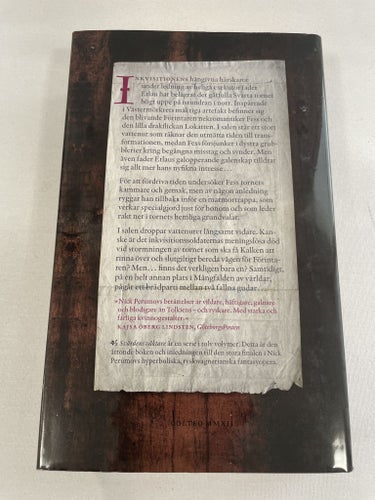 INKVISITIONENS hängivna härskaror
under ledning av helige exekutor fader
Etlau har belägrat det gåtfulla Svarta tornet
högt uppe på
i norr. Inspärrade
i Västermörkrets mäktiga artefakt befinner sig
den blivande Förintaren nekromantiker Fess och
den lilla drakflickan
I salen står ett stort
vattenur som räknar den utmätta tiden till trans-
formationen, medan Fess försjunker i dystra grub-
blerier kring begångna misstag och svider. Men
även fader Etlaus galopperande galenskap tilldrar
sig allt mer hans nyfikna intresse…
För att fördriva tiden undersöker Fess tornets
kammare och gemak, men av någon anledning
ryggar han tillbaka inför en marmortrappa, som
verkar specialgjord just för honom och som leder
rakt ner i tornets hemliga grundvalar.
I solen droppar vattenuret långsamt vidare. Kan-
ske är det inkvisitionssoldaternas meningslösa död
vid stormningen av tornet som ska få Kalken att
rinna över och slutgiltigt bereda vägen för Förinta-
ren? Men… finns det verkligen bara en? Samtidigt,
på en helt annan plats i Mångfalden av världar,
pågår ett brödraparti mellan två fallna gudar…
»Nick Perumovs berättelser är vildare, häftigare, galnare
och blodigare än Tolkiens – och ryskare. Med starka och
farliga kvinnogestalter.«
KAJSA ÖBERG LINDSTEN, GöteborgsPosten
Svärdens väktare är en serie i tolv volymer. Detta är den
åttonde boken och inledningen till den stora finalen i Nick
Perumovs hyperboliska, ryskovagnerianska fantasyopera.
COLTSO MMXII